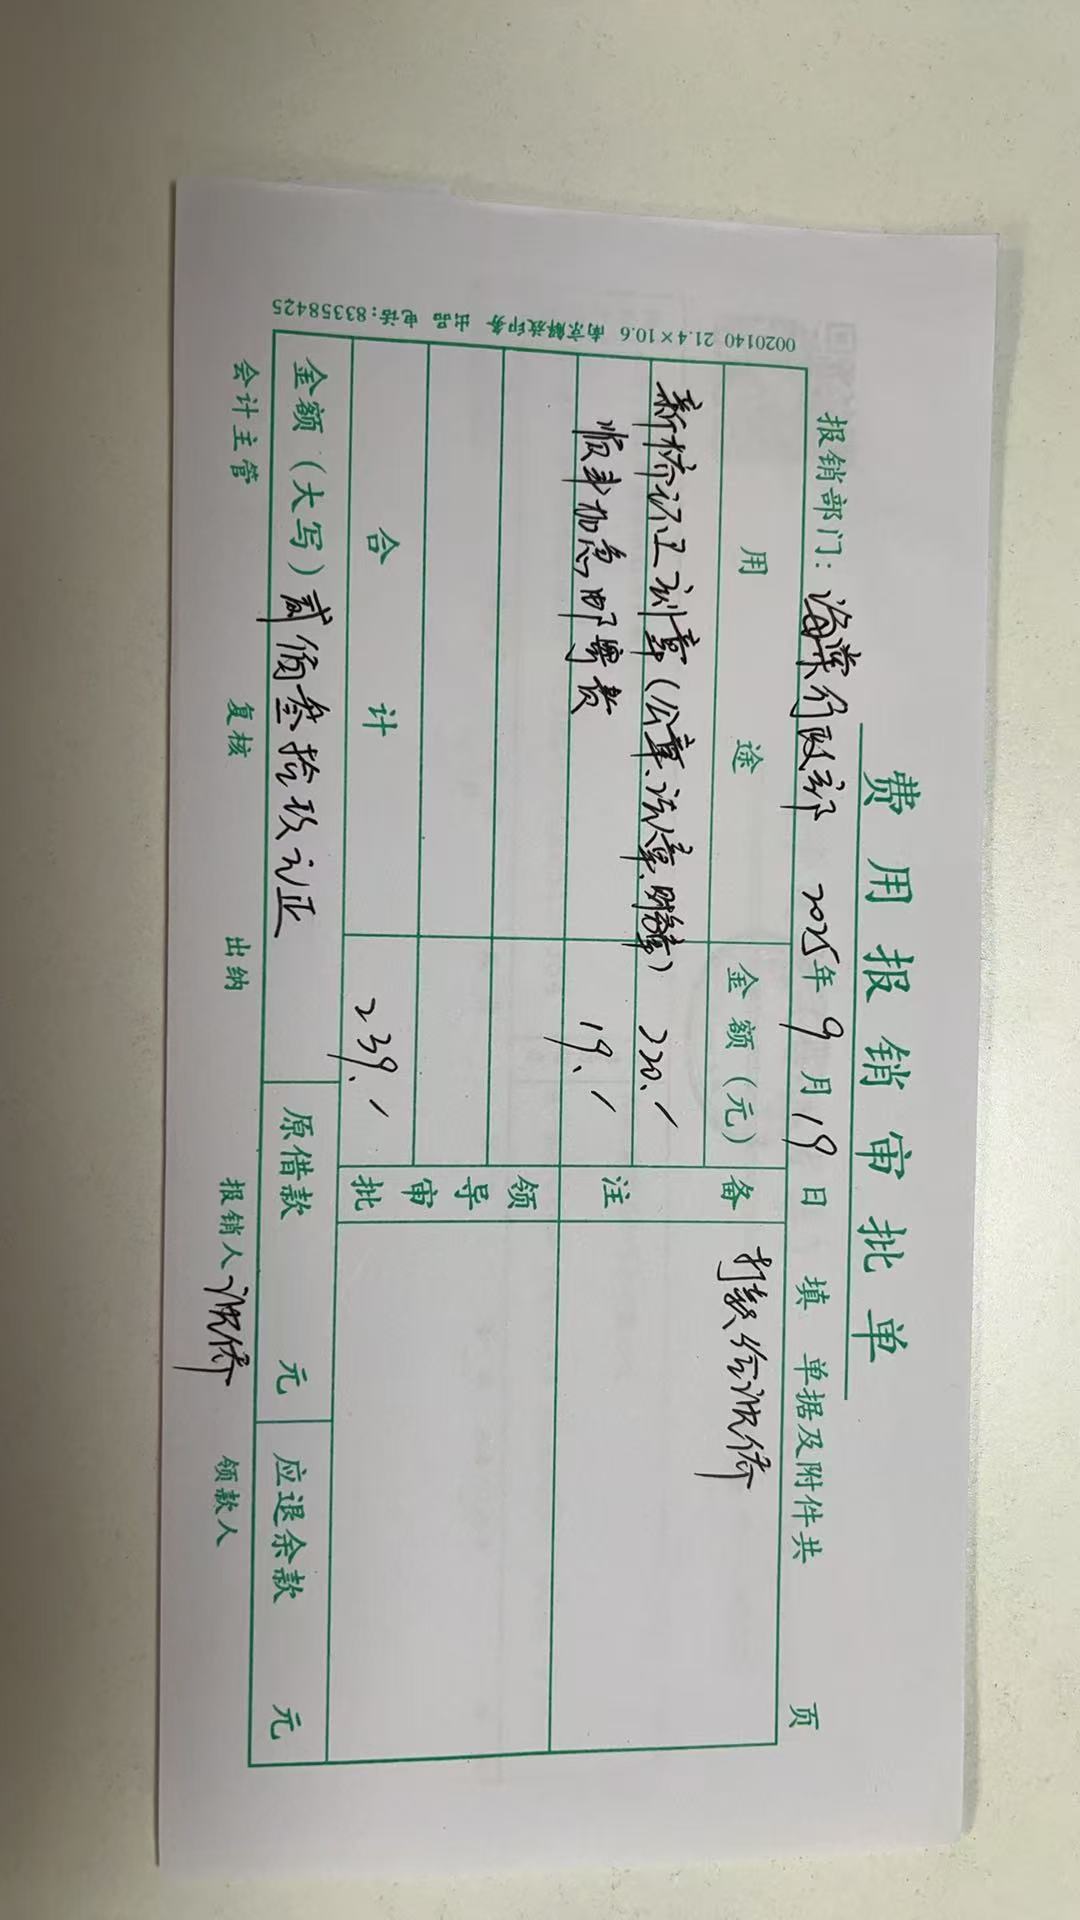 费用报销审批单
报销部门：海棠行政部 2025年9月19日填 单据及附件共 页
用途 金额（元） 备注 打款给
新桥 刻章（公章、法人章、财务章） 220.
顺丰加急邮寄费 19.
领导审批
合计 239.
金额（大写）贰佰叁拾玖元正 原借款 元 应退余款 元
会计主管 复核 出纳 报销人 领款人
0020140 21.4×10.6 南京解放印务 出品 电话：83358425